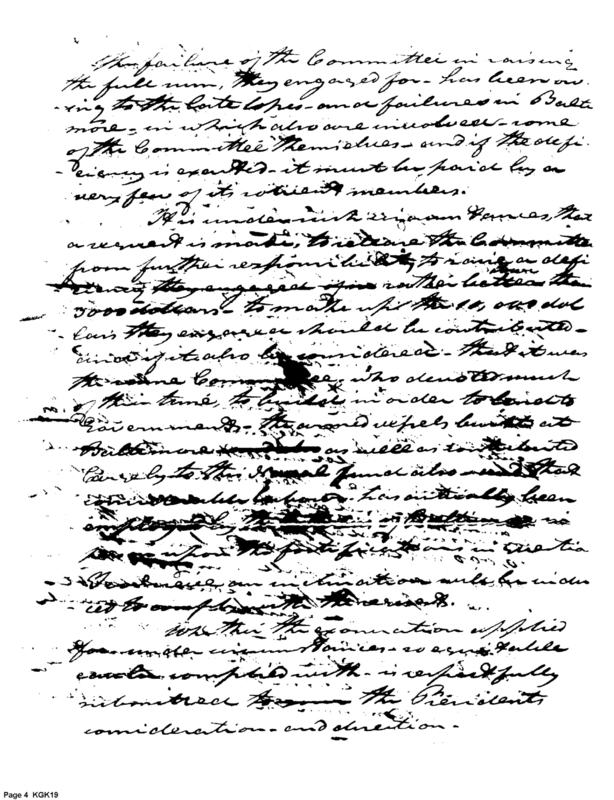 The failure of the Committee in raising
the full sum, they engaged for - has been ow
-ing to the late losses - and failures in Balti
more - in which also are involved - some
of the Committee themselves - and if the defi
-ciency is exacted - it must be paid by a
very few of its members.
It is under such circumstances, that
a request is made, to release the Committee
from further responsibility, to raise a defi
ciency they engaged rather better than
3000 dollars - to make up the 10,000 dol
lars they engaged should be contributed -
and if it also be considered - that it was
the same Committee, who devoted much
of their time, to build in order to loan to
Government - the armed vessels built at
Baltimore as well as contributed
largely to this fund also that
considerable labour has actually been
employed by in
upon the fortifications in
an inclination will be
to comply with the request.
Whether the exoneration applied
for under circumstances - so equitable
can be complied with - is respectfully
submitted to the Presidents
consideration - and direction -
Page 4 KGK19